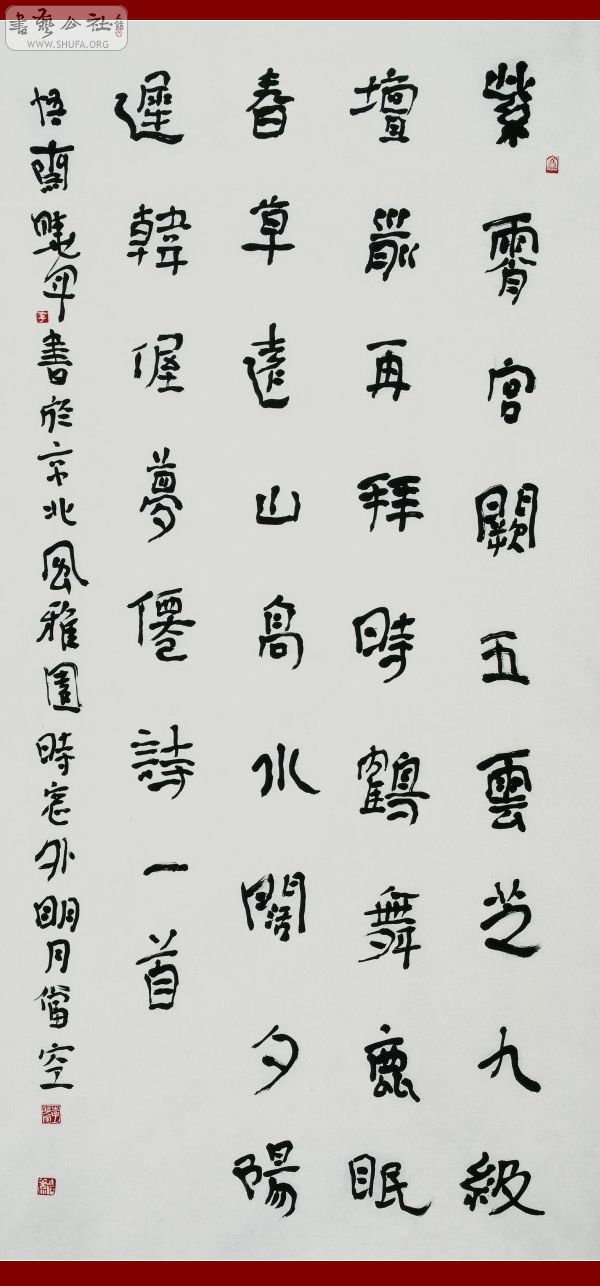 書藝公社
WWW.SHUFA.ORG
紫霄宮闕五雲芝九級
壇前再拜時鶴舞鹿眠
春草遠山高水闊夕陽
遲韓偓夢僊詩一首
悟曉軍書於京北風雅園時窓外明月當空